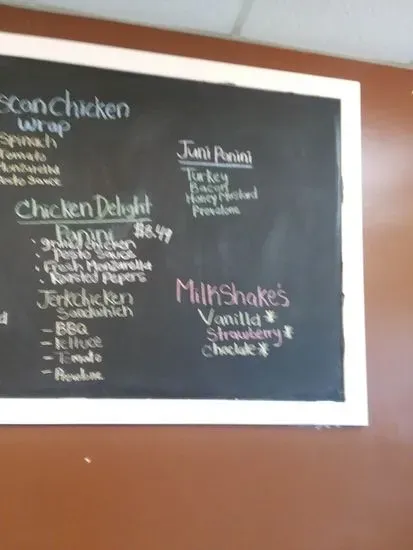 scan chicken
wrap
Spinach
Tomato
Monzarella
Pesto Sauce
Chicken Delight
Panini $8.49
• grilled chicken
• Pesto Sauce
• Fresh Monzarella
• Roasted Pepers
Jerkchicken
Sandwhich
- BBQ
- lettuce
- Tomato
- Provolone
Juni Panini
Turkey
Bacon
Honey Mustard
Provolone
MilkShake's
Vanilla *
Strawberry *
Choclate *